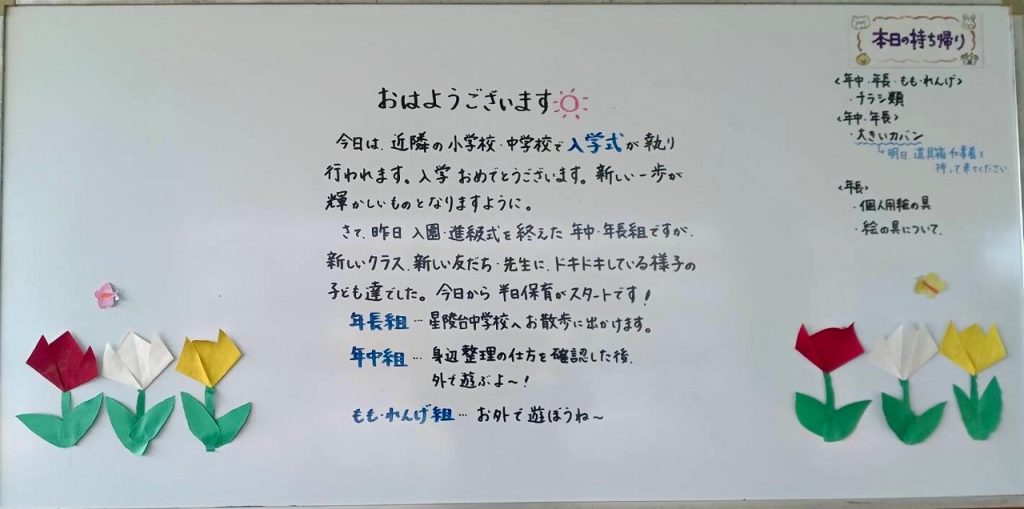 おはようございます
今日は、近隣の小学校・中学校で入学式が執り
行われます。入学おめでとうございます。新しい一歩が
輝かしいものとなりますように。
さて、昨日 入園・進級式を終えた 年中・年長組ですが、
新しいクラス、新しい友だち・先生に、ドキドキしている様子の
子ども達でした。今日から 半日保育がスタートです!
年長組…星陵台中学校へお散歩に出かけます。
年中組…身辺整理の仕方を確認した後、
外で遊ぶよ〜!
もも・れんげ組…お外で遊ぼうね〜
本日の持ち帰り
<年中・年長・もも・れんげ>
・チラシ類
<年中・年長>
・大きいカバン
↳明日 道具箱
持って来てください
<年長>
・個人用絵の具
・絵の具について、